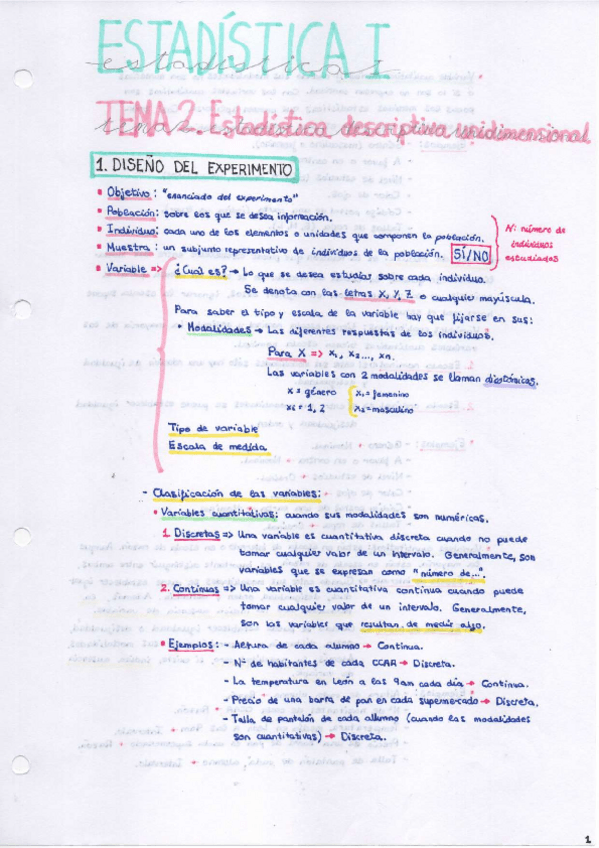 ESTADÍSTICA I
estadística I
TEMA 2. Estadística descriptiva unidimensional
1. DISEÑO DEL EXPERIMENTO
• Objetivo: "enunciado del experimento"
• Población: sobre los que se desea información.
• Individuo: cada uno de los elementos o unidades que componen la población.
• Muestra: un subjunto representativo de individuos de la población. SÍ/NO
N: número de
individuos
estudiados
• Variable => ¿Cuál es? → Lo que se desea estudiar sobre cada individuo.
Se denota con las letras X, Y, Z o cualquier mayúscula.
Para saber el tipo y escala de la variable hay que fijarse en sus:
• Modalidades → Las diferentes respuestas de los individuos.
Para X => x₁, x₂..., xn.
Las variables con 2 modalidades se llaman dicotómicas.
X = género x₁ = femenino
xi = 1, 2 x₂ = masculino
Tipo de variable
Escala de medida
- Clasificación de las variables:
• Variables cuantitativas: cuando sus modalidades son numéricas.
1. Discretas => Una variable es cuantitativa discreta cuando no puede
tomar cualquier valor de un intervalo. Generalmente, son
variables que se expresan como "número de...".
2. Continuas => Una variable es cuantitativa continua cuando puede
tomar cualquier valor de un intervalo. Generalmente,
son las variables que resultan de medir algo.
• Ejemplos: - Altura de cada alumno → Continua.
- Nº de habitantes de cada CCAA → Discreta.
- La temperatura en León a las 9am cada día → Continua.
- Precio de una barra de pan en cada supermercado → Discreta.
- Talla de pantalón de cada alumno (cuando las modalidades
son cuantitativas) → Discreta.
1